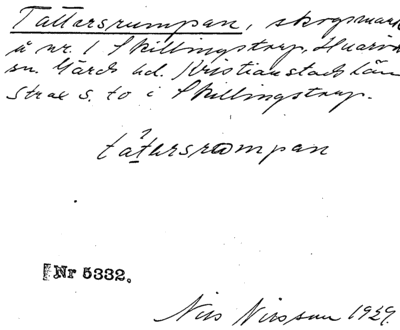 Tattarsrumpan, skogsmark
å nr. 1 Skillingstrup, Hvarös
sn. Gärds hd. Kristianstads län
strax s. to i Skillingstrup.
tátarsrumpan
Nr 5332.
Nils Nilsson 1929.